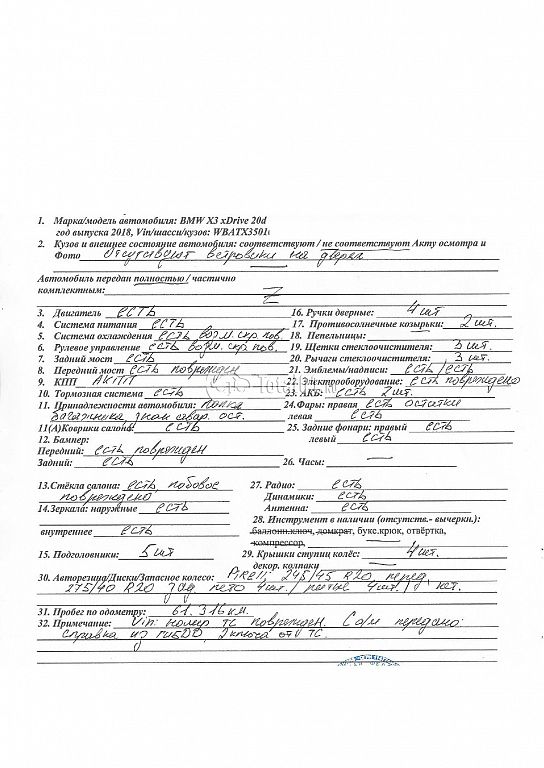 1. Марка/модель автомобиля: BMW X3 xDrive 20d
год выпуска 2018, Vin/шасси/кузов: WBATX3501
2. Кузов и внешнее состояние автомобиля: соответствуют / не соответствуют Акту осмотра и
Фото Отсутствуют на дверях
Автомобиль передан полностью / частично
комплектным: Z
3. Двигатель есть
4. Система питания есть
5. Система охлаждения есть возм. скр. пов.
6. Рулевое управление есть возм. скр. пов.
7. Задний мост есть
8. Передний мост есть поврежден
9. КПП АКПП
10. Тормозная система есть
11. Принадлежности автомобиля: полка
багажника, знак авар. ост.
11(А)Коврики салона: есть
12. Бампер:
Передний: есть поврежден
Задний: есть
16. Ручки дверные: 4 шт
17. Противосолнечные козырьки: 2 шт.
18. Пепельницы: —
19. Щетки стеклоочистителя: 3 шт.
20. Рычаги стеклоочистителя: 3 шт.
21. Эмблемы/надписи: есть/есть
22. Электрооборудование: есть повреждено
23. АКБ: есть 2 шт.
24.Фары: правая есть остатки
левая есть
25. Задние фонари: правый есть
левый есть
26. Часы: —
13.Стёкла салона: есть, лобовое
повреждено
14.Зеркала: наружные есть
внутреннее есть
15. Подголовники: 5 шт
27. Радио: есть
Динамики: есть
Антенна: есть
28. Инструмент в наличии (отсутств.- вычеркн.):
баллонн.ключ, домкрат, букс.крюк, отвёртка,
компрессор,
29. Крышки ступиц колёс: 4 шт.
декор. колпаки —
30. Авторезина/Диски/Запасное колесо: Pirelli 245/45 R20 перед,
275/40 R20 зад лето 4 шт./ литые 4 шт./ нет.
31. Пробег по одометру: 61.316 км.
32. Примечание: Vin: номер ТС поврежден. С а/м передано:
справка из ГИБДД, 2 ключа от ТС.